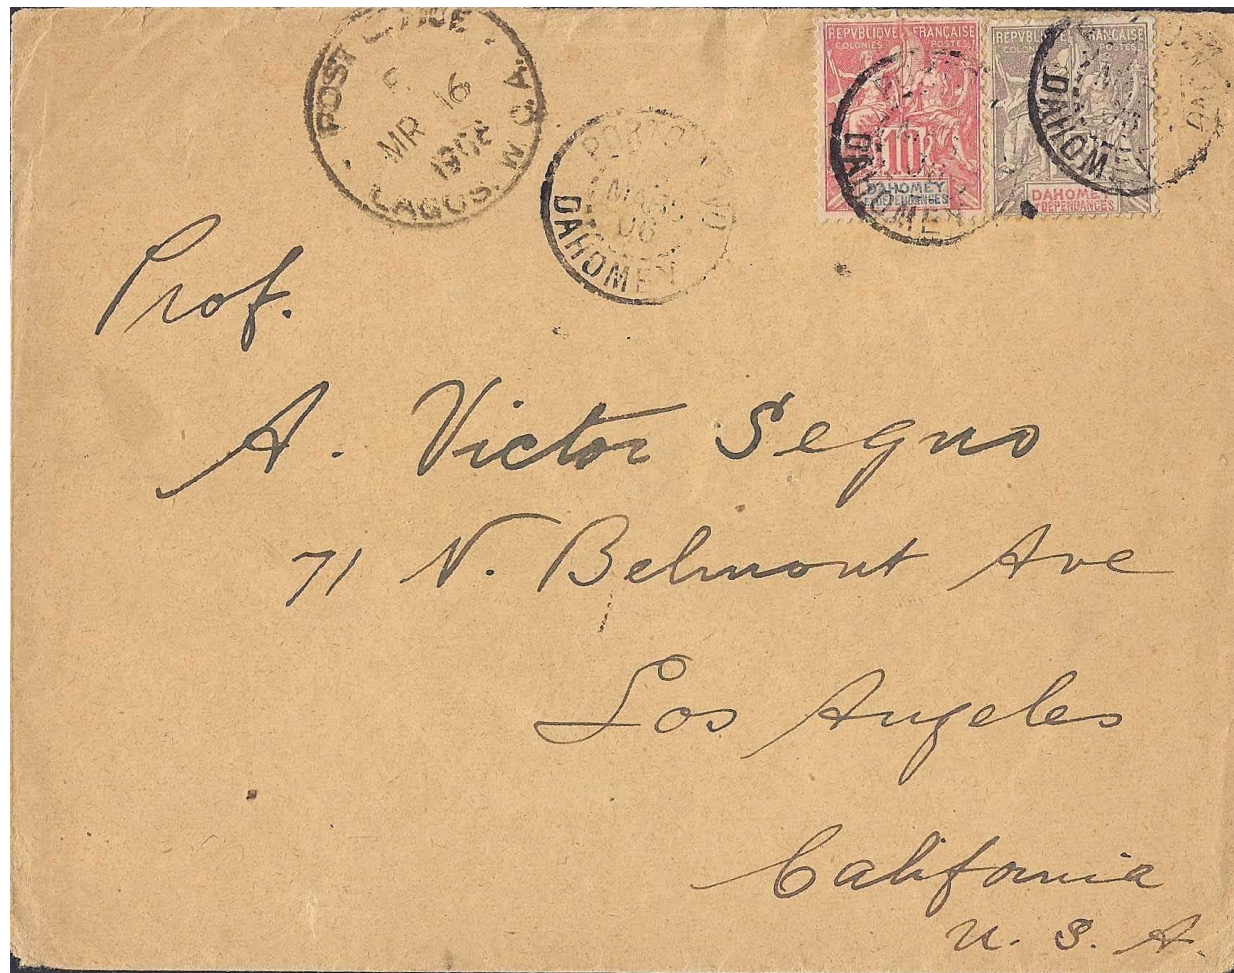 POST OFFICE
MR 16
1906
LAGOS. W.C.A.
PORTO-NOVO
MARS
06
DAHOMEY
REPVBLIQUE FRANÇAISE
COLONIES POSTES
10
DAHOMEY
ET DÉPENDANCES
DAHOMEY
REPVBLIQUE FRANÇAISE
COLONIES POSTES
DAHOMEY
ET DÉPENDANCES
DAHOMEY
Prof.
A. Victor Segno
71 N. Belmont Ave
Los Angeles
California
U. S. A.